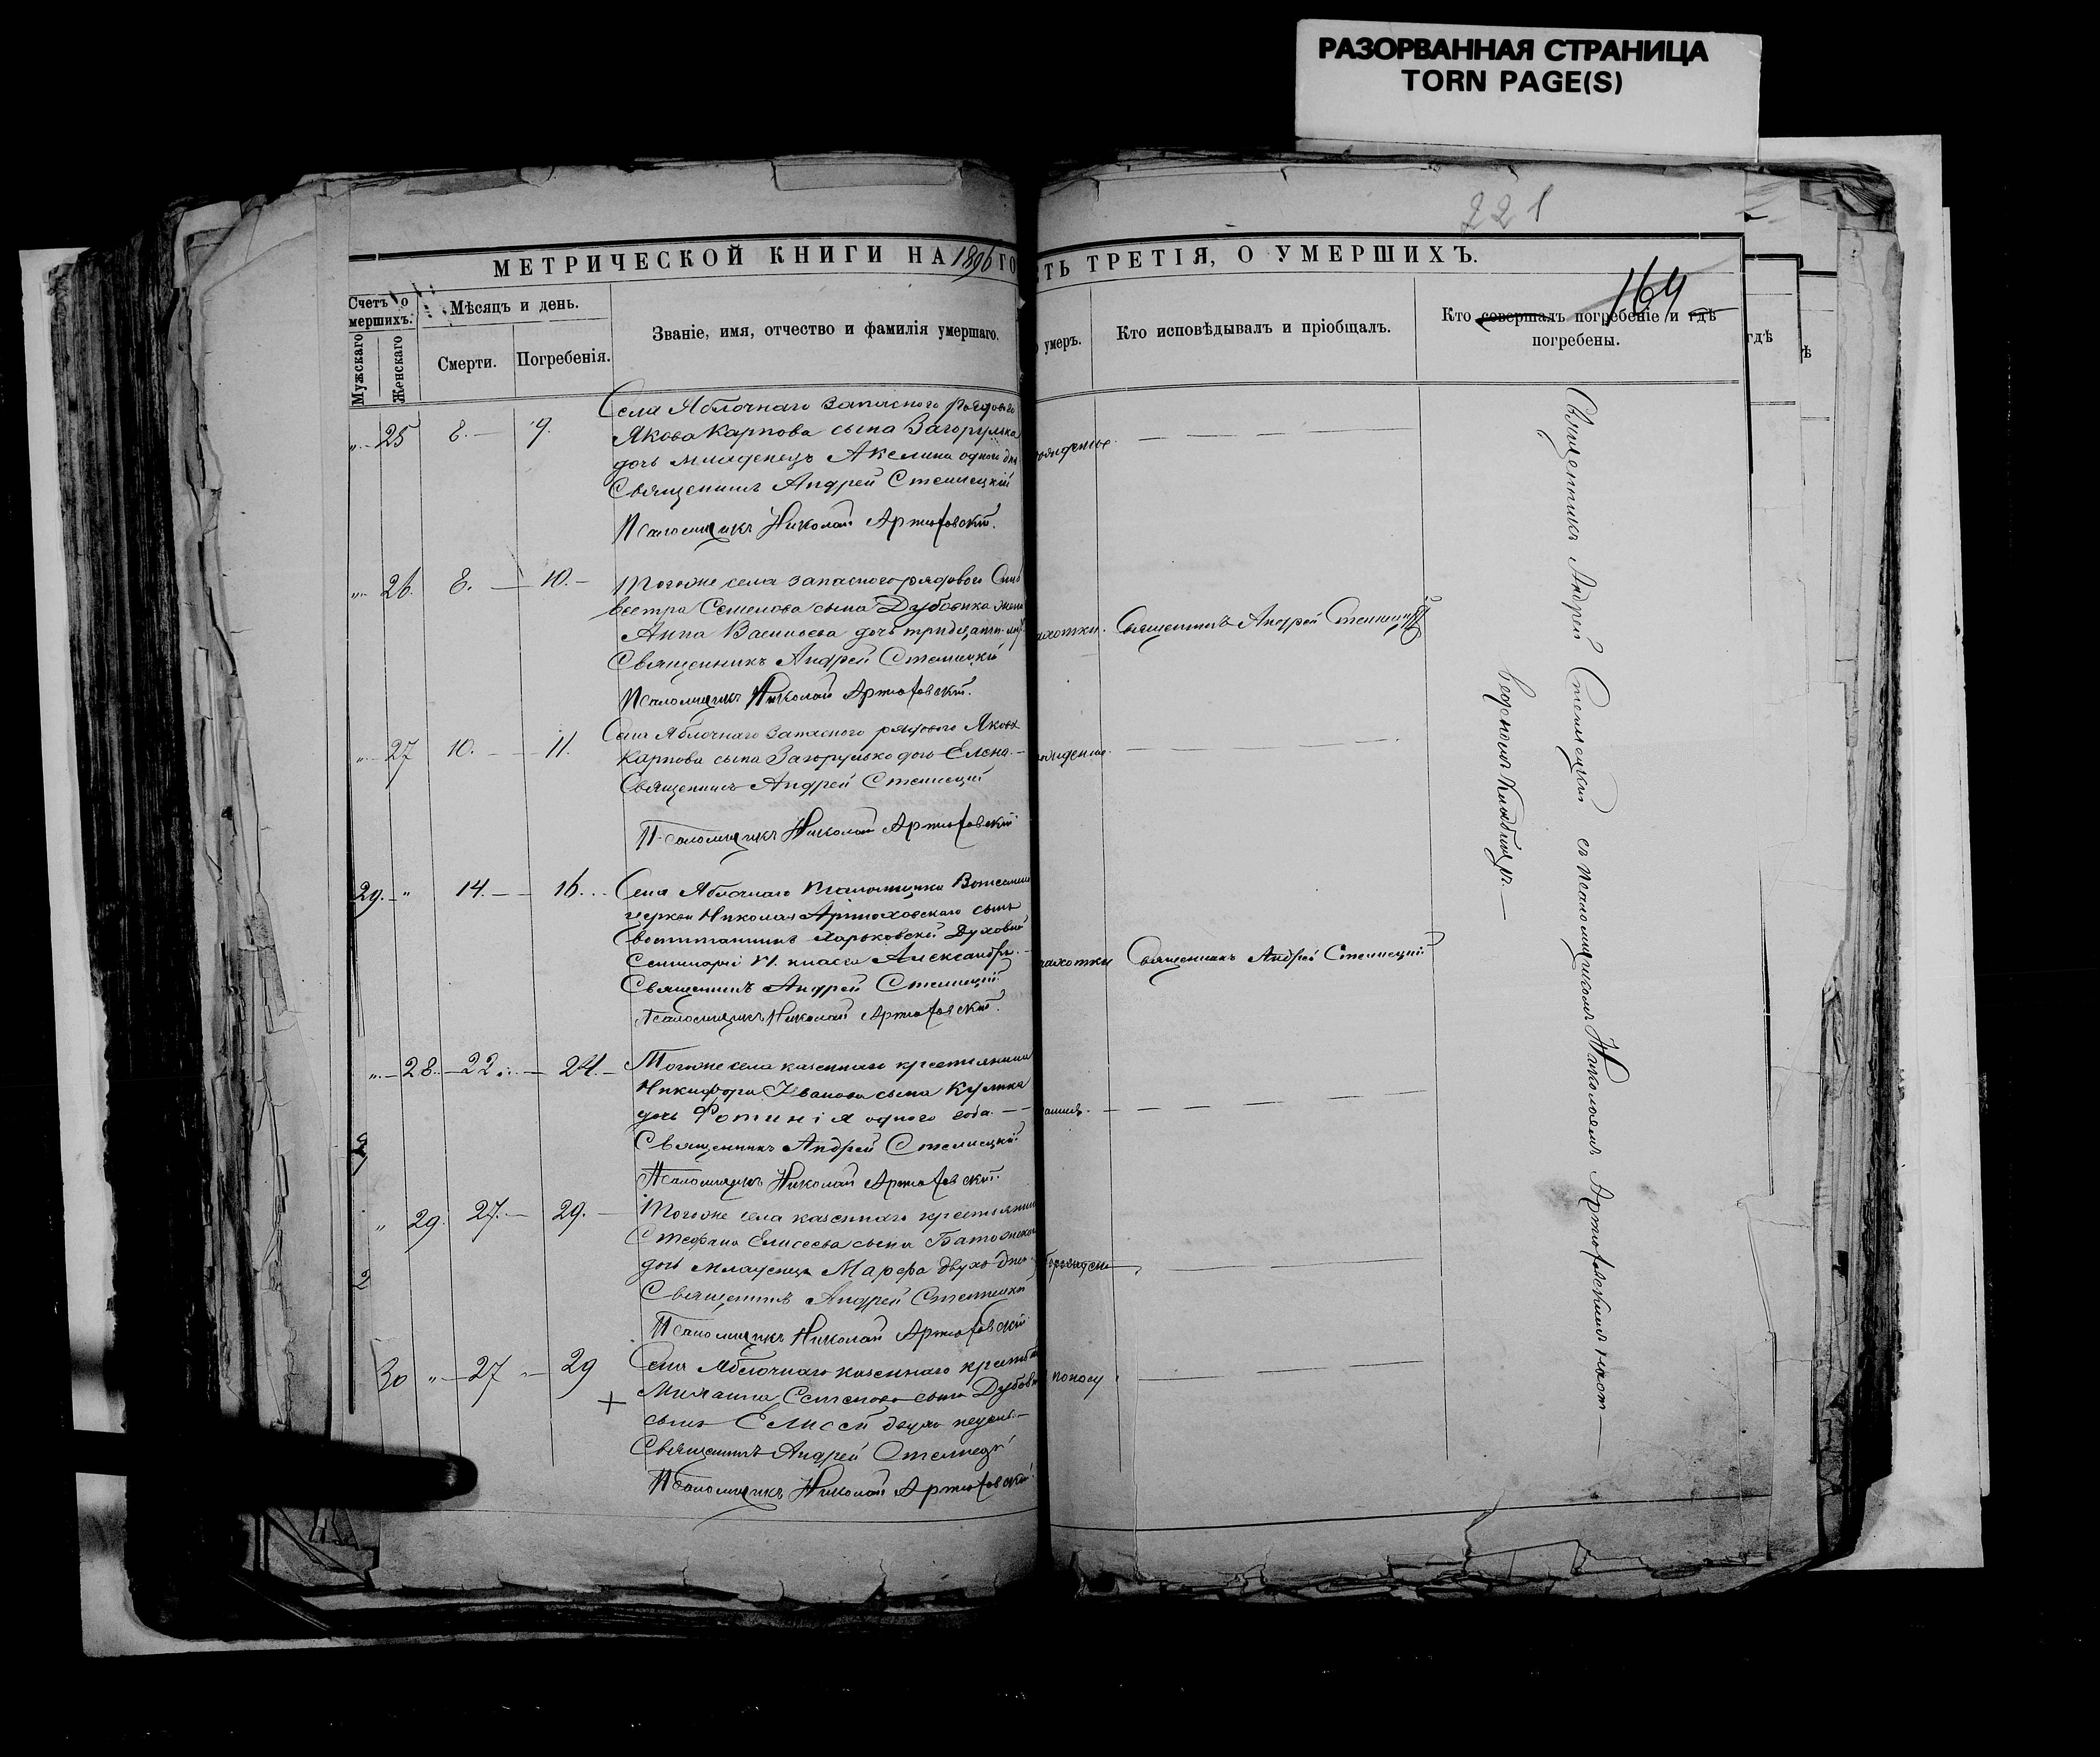 РАЗОРВАННАЯ СТРАНИЦА
TORN PAGE(S)
221
МЕТРИЧЕСКОЙ КНИГИ НА 1896 ГО
СТЬ ТРЕТІЯ, О УМЕРШИХЪ.
164
Счетъ
мершихъ.
Мужскаго
Женскаго
Мѣсяцъ и день.
Смерти.
Погребенія.
Званіе, имя, отчество и фамилія умершаго.
умеръ.
Кто исповѣдывалъ и пріобщалъ.
Кто совершалъ погребеніе и гдѣ
погребены.
гдѣ
ѣ
„ 25 8. 9.
Села Яблочнаго запаснаго рядового
Якова Карпова сына Загорулька
дочь младенецъ Акелина одного дня
Священникъ Андрей Стеллецкій
Псаломщикъ Николай Артюховскій.
„ 26. 8. 10.
Тогоже села запасного рядового Силь
вестра Семенова сына Дубовика жена
Анна Васильева дочь тридцати
Священникъ Андрей Стеллецкій
Псаломщикъ Николай Артюховскій.
Священникъ Андрей Стеллецкій
„ 27 10. 11.
Села Яблочнаго запаснаго рядового Якова
Карпова сына Загорулько дочь Елена.
Священникъ Андрей Стеллецкій
Псаломщикъ Николай Артюховскій
29. „ 14. 16.
Села Яблочнаго Псаломщика
церкви Николая Артюховскаго сынъ
воспитанникъ Харьковской Духовной
Семинаріи VI. класса Александръ.
Священникъ Андрей Стеллецкій
Псаломщикъ Николай Артюховскій.
Священникъ Андрей Стеллецкій
„ 28. 22. 24.
Тогоже села казеннаго крестьянина
Никифора Іванова сына Кулика
дочь Фотинія одного года.
Священникъ Андрей Стеллецкій
Псаломщикъ Николай Артюховскій.
„ 29. 27. 29.
Тогоже села казеннаго крестьянина
Стефана Елисеева сына
дочь младенецъ Марфа двухъ дней
Священникъ Андрей Стеллецкій
Псаломщикъ Николай Артюховскій
30 „ 27 29
Села Яблочнаго казеннаго
Семенова сына
сынъ Елисей двухъ недель.
Священникъ Андрей Стеллецкій
Псаломщикъ Николай Артюховскій
поносу
Священникъ Андрей Стеллецкій съ псаломщикомъ Николаемъ Артюховскимъ на